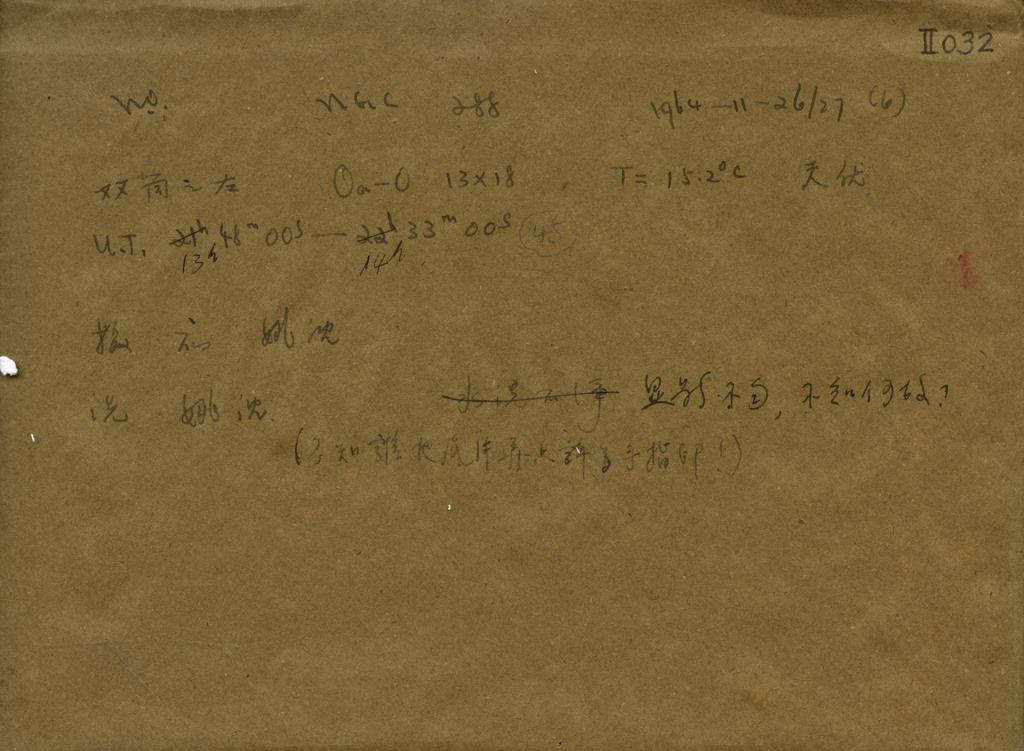 II032
No. NGC 288 1964-11-26/27 (6)
双筒之左 Oa-O 13×18 T=15.2°C 天优
U.T. 21h 48m 00s — 22h 33m 00s (45)
13h 14h
姚 沈
洗 姚 沈 水洗不净 显影不匀, 不知何故?
(不知誰把底片弄上許多手指印!)